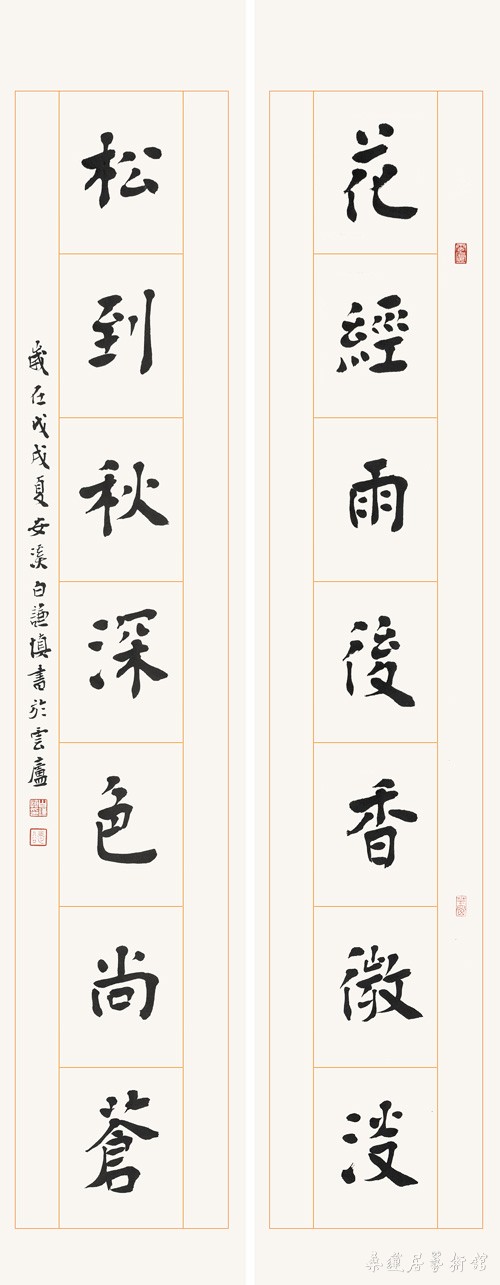 花經雨後香微淡
松到秋深色尚蒼
歲在戊戌夏安溪白謙慎書於雲廬
桑蓮居藝術館